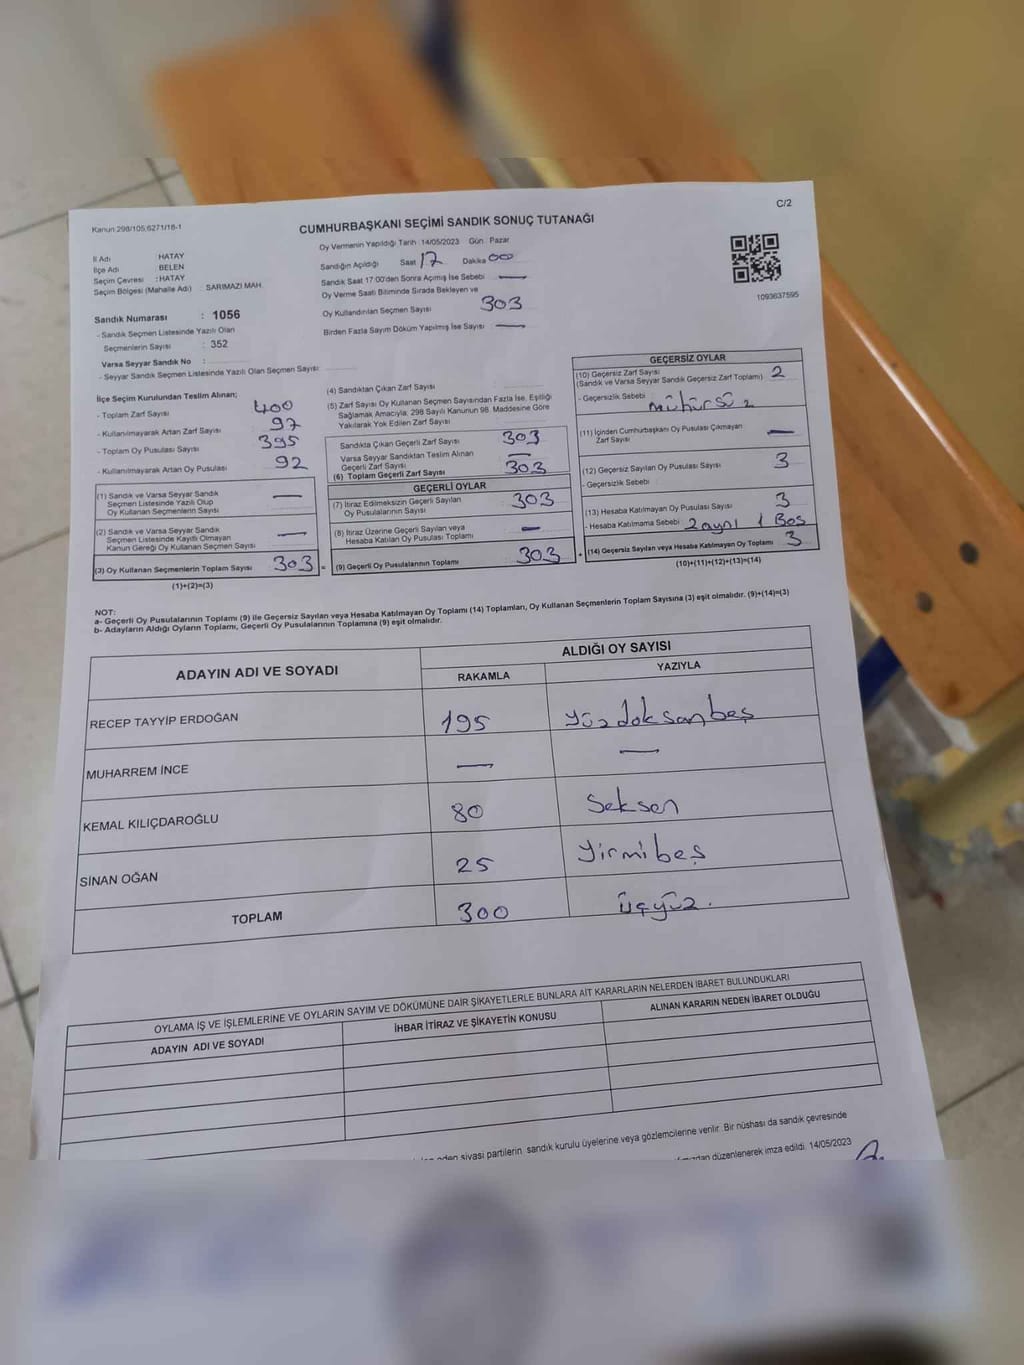 C/2
Kanun 298/105,6271/18-1
CUMHURBAŞKANI SEÇİMİ SANDIK SONUÇ TUTANAĞI
Oy Vermenin Yapıldığı Tarih :14/05/2023 Gün : Pazar
İl Adı : HATAY
İlçe Adı : BELEN
Seçim Çevresi : HATAY
Seçim Bölgesi (Mahalle Adı) : SARIMAZI MAH.
Sandığın Açıldığı Saat 17 Dakika 00
Sandık Saat 17:00'den Sonra Açılmış İse Sebebi —
Oy Verme Saati Bitiminde Sırada Bekleyen ve
Oy Kullandırılan Seçmen Sayısı 303
Birden Fazla Sayım Döküm Yapılmış İse Sayısı —
1093637595
Sandık Numarası : 1056
- Sandık Seçmen Listesinde Yazılı Olan
Seçmenlerin Sayısı : 352
Varsa Seyyar Sandık No :
- Seyyar Sandık Seçmen Listesinde Yazılı Olan Seçmen Sayısı:
İlçe Seçim Kurulundan Teslim Alınan;
- Toplam Zarf Sayısı 400
- Kullanılmayarak Artan Zarf Sayısı 97
- Toplam Oy Pusulası Sayısı 395
- Kullanılmayarak Artan Oy Pusulası 92
(1) Sandık ve Varsa Seyyar Sandık
Seçmen Listesinde Yazılı Olup
Oy Kullanan Seçmenlerin Sayısı —
(2) Sandık ve Varsa Seyyar Sandık
Seçmen Listesinde Kayıtlı Olmayan
Kanun Gereği Oy Kullanan Seçmen Sayısı —
(3) Oy Kullanan Seçmenlerin Toplam Sayısı 303 =
(1)+(2)=(3)
(4) Sandıktan Çıkan Zarf Sayısı :
(5) Zarf Sayısı Oy Kullanan Seçmen Sayısından Fazla İse, Eşitliği
Sağlamak Amacıyla; 298 Sayılı Kanunun 98. Maddesine Göre
Yakılarak Yok Edilen Zarf Sayısı :
Sandıkta Çıkan Geçerli Zarf Sayısı 303
Varsa Seyyar Sandıktan Teslim Alınan
Geçerli Zarf Sayısı —
(6) Toplam Geçerli Zarf Sayısı 303
GEÇERLİ OYLAR
(7) İtiraz Edilmeksizin Geçerli Sayılan
Oy Pusulalarının Sayısı 303
(8) İtiraz Üzerine Geçerli Sayılan veya
Hesaba Katılan Oy Pusulası Toplamı —
(9) Geçerli Oy Pusulalarının Toplamı 303 +
GEÇERSİZ OYLAR
(10) Geçersiz Zarf Sayısı
(Sandık ve Varsa Seyyar Sandık Geçersiz Zarf Toplamı) 2
- Geçersizlik Sebebi mühürsüz
(11) İçinden Cumhurbaşkanı Oy Pusulası Çıkmayan
Zarf Sayısı —
(12) Geçersiz Sayılan Oy Pusulası Sayısı 3
- Geçersizlik Sebebi :
(13) Hesaba Katılmayan Oy Pusulası Sayısı 3
- Hesaba Katılmama Sebebi 2 aynı 1 Boş
(14) Geçersiz Sayılan veya Hesaba Katılmayan Oy Toplamı 3
(10)+(11)+(12)+(13)=(14)
NOT:
a- Geçerli Oy Pusulalarının Toplamı (9) ile Geçersiz Sayılan veya Hesaba Katılmayan Oy Toplamı (14) Toplamları, Oy Kullanan Seçmenlerin Toplam Sayısına (3) eşit olmalıdır. (9)+(14)=(3)
b- Adayların Aldığı Oyların Toplamı, Geçerli Oy Pusulalarının Toplamına (9) eşit olmalıdır.
ADAYIN ADI VE SOYADI ALDIĞI OY SAYISI
RAKAMLA YAZIYLA
RECEP TAYYİP ERDOĞAN 195 yüzdoksanbeş
MUHARREM İNCE — —
KEMAL KILIÇDAROĞLU 80 Seksen
SİNAN OĞAN 25 Yirmibeş
TOPLAM 300 üçyüz.
OYLAMA İŞ VE İŞLEMLERİNE VE OYLARIN SAYIM VE DÖKÜMÜNE DAİR ŞİKAYETLERLE BUNLARA AİT KARARLARIN NELERDEN İBARET BULUNDUKLARI
ADAYIN ADI VE SOYADI İHBAR İTİRAZ VE ŞİKAYETİN KONUSU ALINAN KARARIN NEDEN İBARET OLDUĞU
eden siyasi partilerin sandık kurulu üyelerine veya gözlemcilerine verilir. Bir nüshası da sandık çevresinde
düzenlenerek imza edildi. 14/05/2023